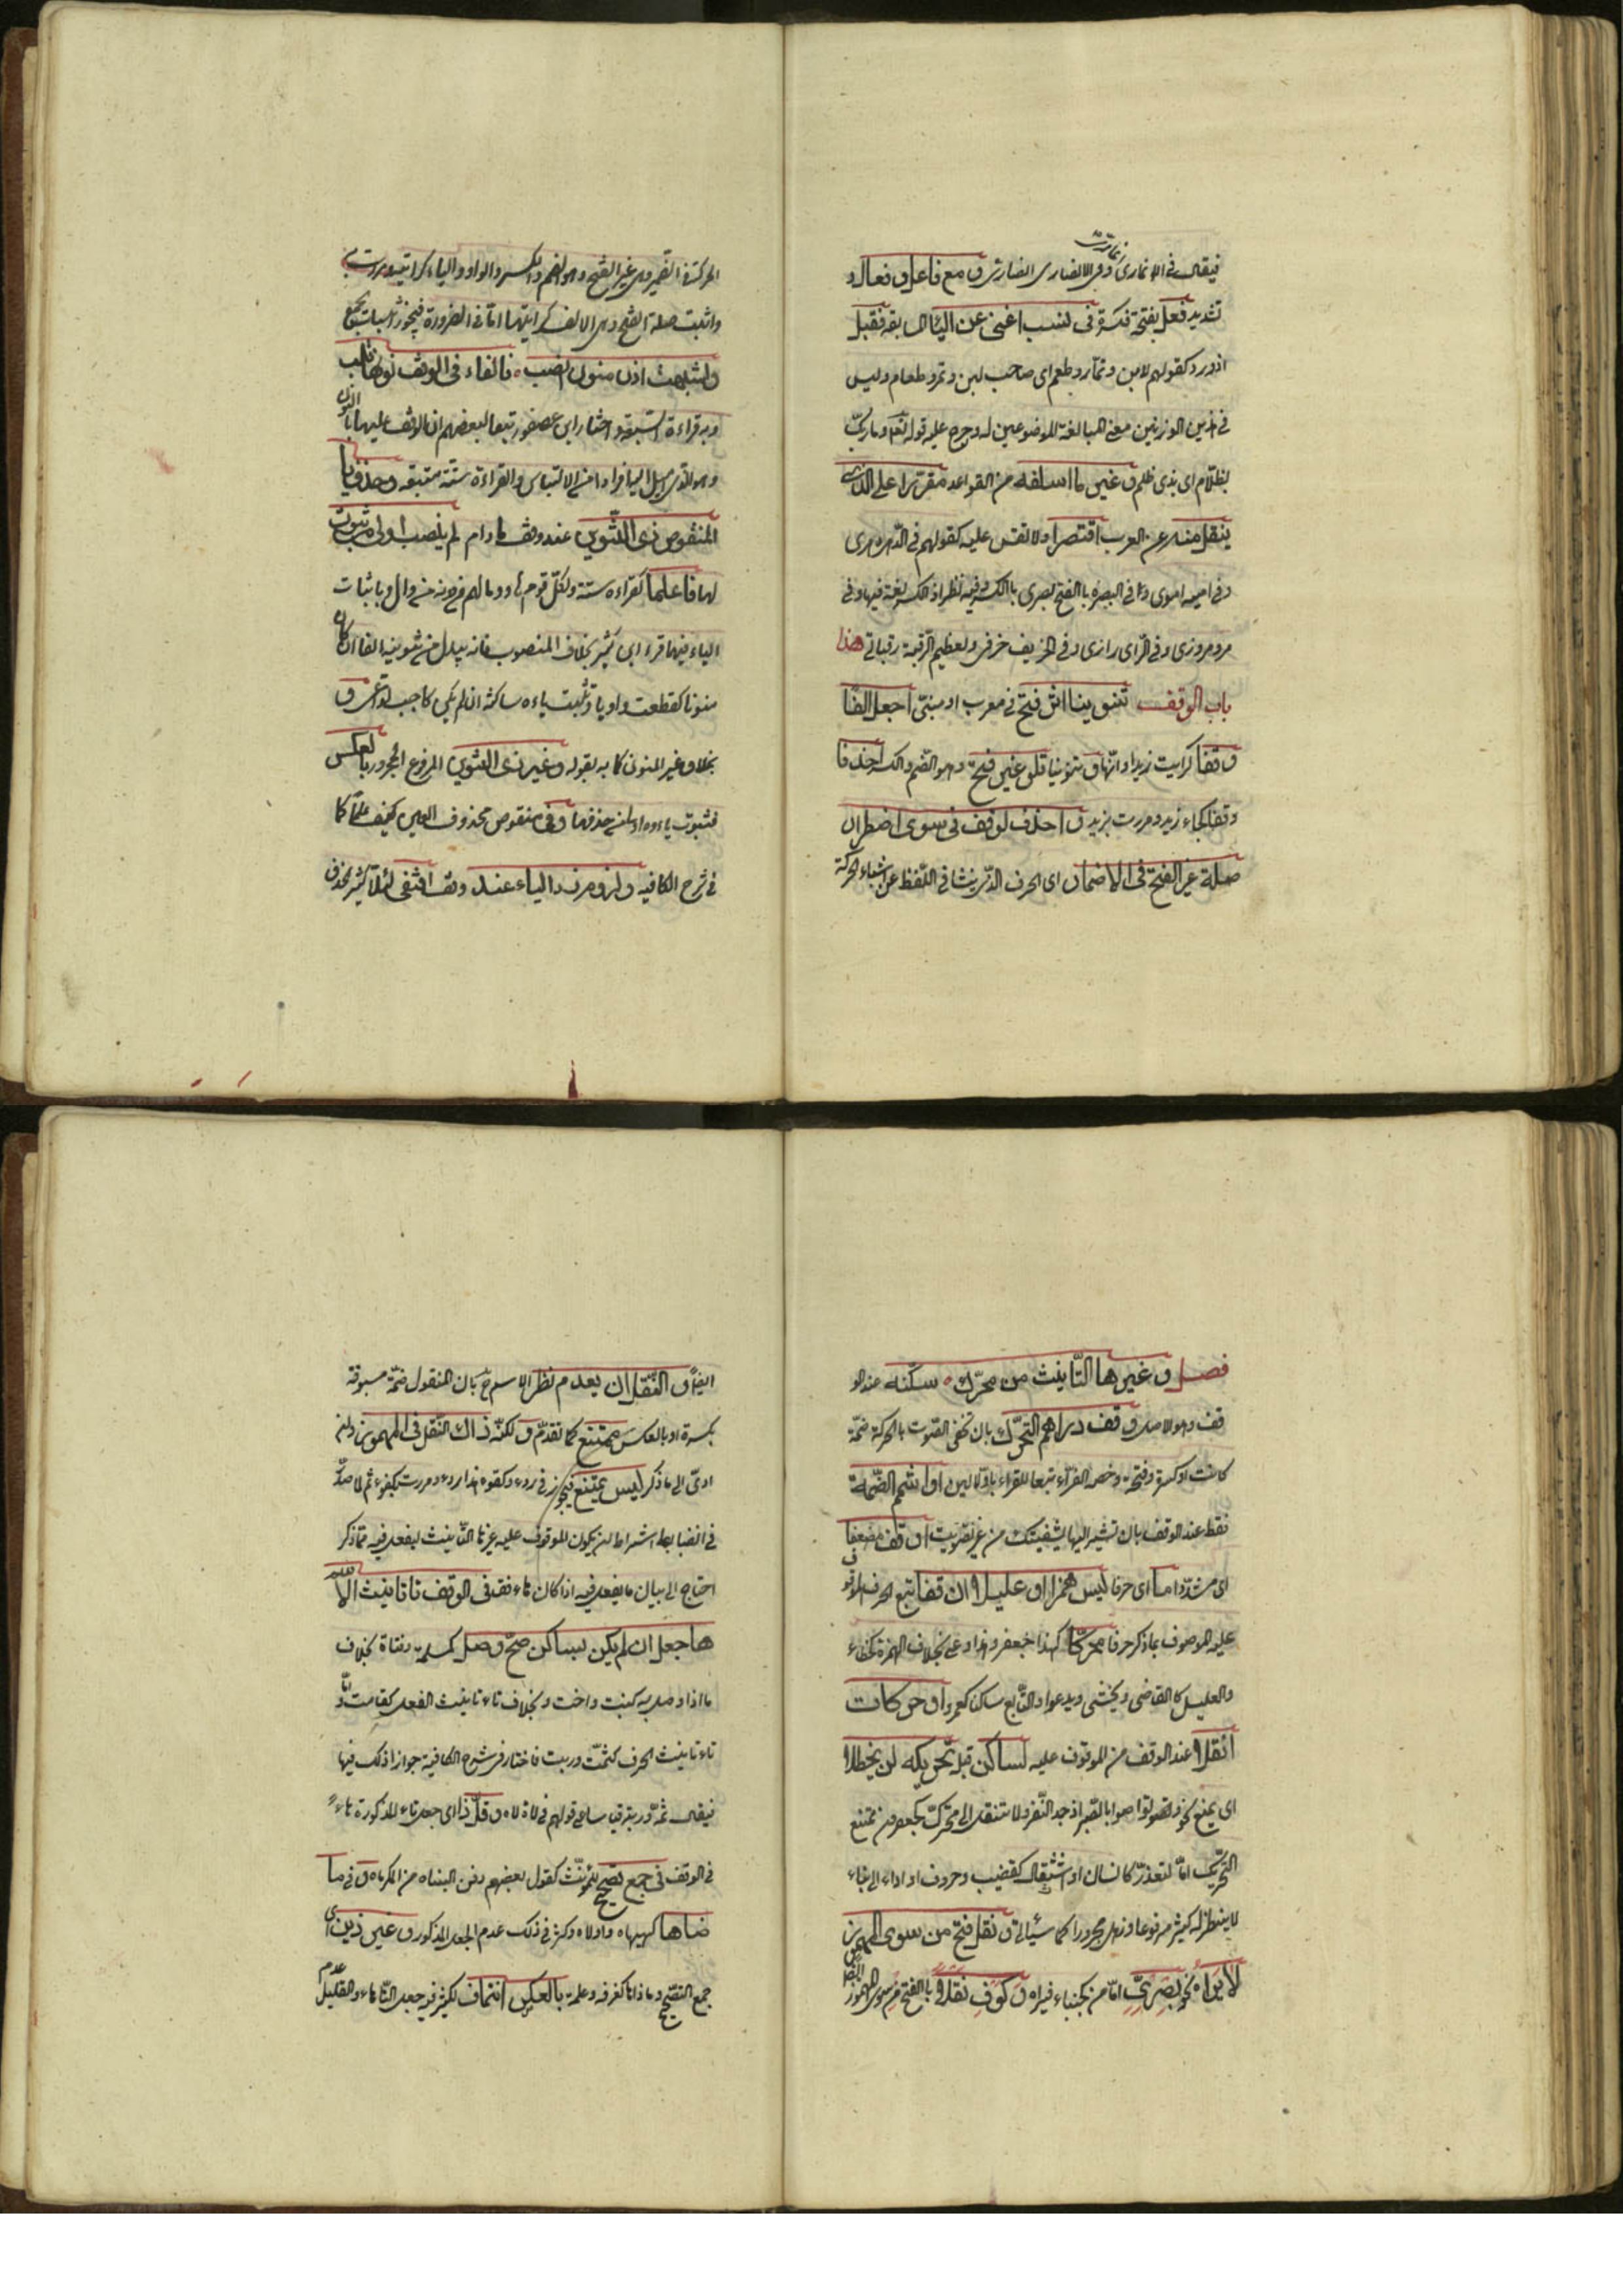 فيقال في الانماري وفي الانصاري انصاري ومع فاعل وفعال و
تشديد فعل بفتحة فكسرة في نسب اغنى عن اليا السابقة فقبل
اذ ورد كقولهم لابن وتمار وطعم اي صاحب لبن وتمر وطعام وليس
في هذين الوزنين معنى المبالغة الموضوعين له وخرج عليه قوله تعالى وما ربك
بظلام اي بذي ظلم وغير ما اسلفته من القواعد مقررا على الذي
ينقل منه عن العرب اقتصرا ولا تقس عليه كقولهم في الدهر دهري
وفي امية اموي وفي البصرة بالفتح بصري بالكسر وفيه نظر اذ الكسر لغة فيها وفي
مرو مروزي وفي الري رازي وفي الخريف خرفي ولعظيم الرقبة رقباني هذا
باب الوقف تنوينا اثر فتح في معرب او مبني اجعل الفا
وقفا كرايت زيدا وايها وتنوينا تلو غير فتح وهو الضم والكسر احذفا
وقفا كجاء زيد ومررت بزيد واحذف لوقف في سوى اضطرار
صلة غير الفتح في الاضمار اي الحرف الذي ينشا في اللفظ عن اشباع الحركة
الحركة في الضمير وهي غير الفتح وهو الضم والكسر والواو والياء كرايته ومررت به
واثبت صلة الفتح وهي الالف كرايتها اما في الضرورة فيجوز اثبات الجميع
واشبهت اذن منون نصب فالفا في الوقف نونها قلب
وبه قراءة السبعة واختار ابن عصفور تبعا لبعضهم ان الوقف عليها بالنون
وهو الذي اميل اليه فرارا من الالتباس والقراءة سنة متبعة وحذف يا
المنقوص ذي التنوين عند وقف ما دام لم ينصب اولى من ثبوت
لها فاعلما كقراءة ستة ولكل قوم هاد وما لهم من دونه من وال وباثبات
الياء فيها قرء ابن كثير بخلاف المنصوب فانه يبدل من تنوينه الفا ان كان
منونا كقطعت واديا وتثبت ياءه ساكنة ان لم يكن كاجيب الداعي و
بخلاف غير المنون كما به بقوله وغير ذي التنوين المرفوع المجرور بالعكس
فثبوت ياءه اولى من حذفها وفي منقوص محذوف العين كيف علما كما
في شرح الكافية ولزوم رد الياء عند وقف اقتفي لئلا يكثر الحذف
فصل وغير ها التانيث من محرك سكنه عند الو
قف وهو الاصل وقف درائم التحرك بان تخفي الصوت بالحركة ضمة
كانت او كسرة وفتحة وخصه الفراء تبعا للقراء بالاولين او اشمم الضمة
فقط عند الوقف بان تشير اليها بشفتيك من غير تصويت او قف مضعفا
اي مشددا ما اي حرفا ليس همزا او عليلا ان قفا تبع الحرف الموقوف
عليه الموصوف بما ذكر حرفا محركا كهذا جعفر بخلاف الهمزة كخطاء
والعليل كالقاضي ويخشى ويدعو والتابع ساكنا كعمرو او حركات
انقلا عند الوقف من الموقوف عليه لساكن قبل تحريكه لن يحظلا
اي يمنع نحو وتواصوا بالصبر اذ جد النقر ولا تنقل الى محرك كجعفر ومن يمتنع
التحريك اما لتعذر كانسان او استثقال كقضيب وحروف او اداء الى بناء
لا ينظر له كبشر مرفوعا وذهل مجرورا كما سياتي ونقل فتح من سوى المهموز
لا يراه نحو بصري اما من كجنباء فيراه وكوف نقلا بالفتح من سوى المهموز
ايضا والنقل ان يعدم نظير للاسم ح بان المنقول ضمة مسبوقة
بكسرة او بالعكس ممتنع كما تقدم ولكن ذاك النقل في المهموز وان
ادى الى ما ذكر ليس يمتنع فيجوز في ردء وكفوء هذا ردء ومررت بكفوء ثم لما صدر
في الضابط اشتراط ان يكون الموقوف عليه غير ها التانيث ليفعل فيه ما ذكر
احتاج الى بيان ما يفعل فيه اذا كان هاء فقف في الوقف تا تانيث الاسم
ها جعل ان لم يكن بساكن صح وصل كمسلمة وفتاة بخلاف
ما اذا وصل به كبنت واخت وبخلاف تاء تانيث الفعل كقامت واما
تاء تانيث الحرف كثمت وربت فاختار في شرح الكافية جواز ذلك فيها
فيقال ثمه وربه قياسا على قولهم في لات لاه وقل ذا اي جعل تاء المذكورة هاء
في الوقف في جمع تصحيح لمونث كقول بعضهم دفن البناه من المكرماه وفي ما
ضاها كهيهاه واولاه وكثر في ذلك عدم الجعل المذكور وغير ذين اي
جمع التصحيح وما ضاهاه كغرفة وعلمة بالعكس انتما فالكثير فيه جعل التاء هاء والقليل عدم